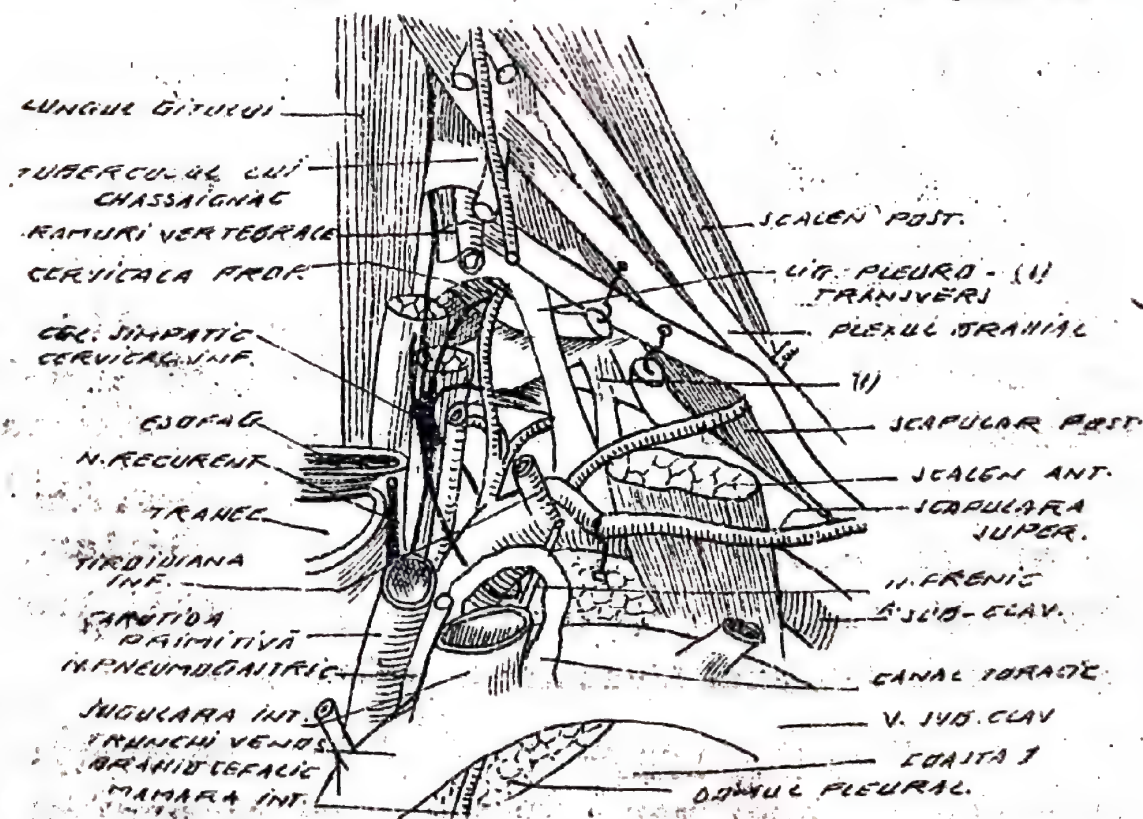 LUNGUL GITULUI
TUBERCULUL LUI
CHASSAIGNAC
RAMURI VERTEBRALE
CERVICALA PROF.
GGL. SIMPATIC
CERVICAL INF.
ESOFAG
N. RECURENT
TRAHEE
TIROIDIANA
INF.
CAROTIDA
PRIMITIVĂ
N. PNEUMOGASTRIC
JUGULARA INT.
TRUNCHI VENOS
BRAHIOCEFALIC
MAMARA INT.
SCALEN POST.
LIG. PLEURO - (1)
TRANSVERS
PLEXUL BRAHIAL
(1)
SCAPULAR POST.
SCALEN ANT.
SCAPULARA
SUPER.
N. FRENIC
SUB-CLAV.
CANAL TORACIC
V. SUB. CLAV
COASTA I
DOMUL PLEURAL.